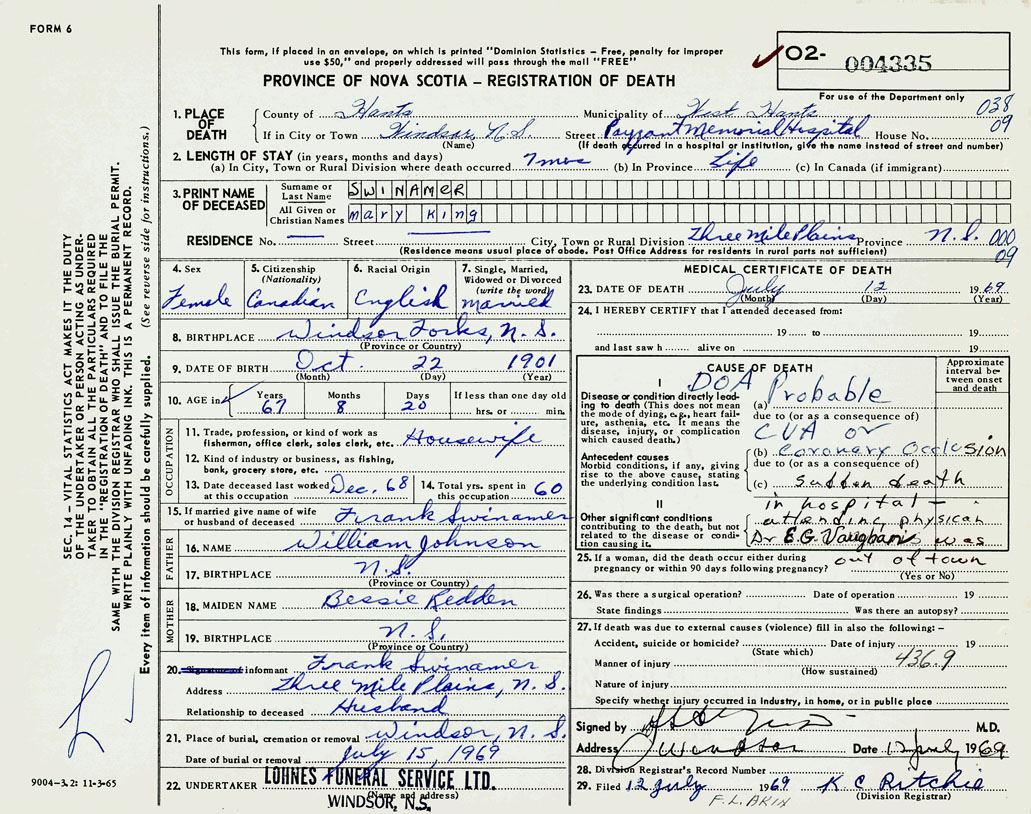 FORM 6
This form, if placed in an envelope, on which is printed "Dominion Statistics – Free, penalty for improper
use $50," and properly addressed will pass through the mail "FREE"
PROVINCE OF NOVA SCOTIA – REGISTRATION OF DEATH
✓ O2- 004335
For use of the Department only
038
09
1. PLACE OF DEATH
County of Hants Municipality of West Hants
If in City or Town Windsor, N.S. Street Payzant Memorial Hospital House No.
(Name) (If death occurred in a hospital or institution, give the name instead of street and number)
2. LENGTH OF STAY (in years, months and days)
(a) In City, Town or Rural Division where death occurred 7 mos (b) In Province Life (c) In Canada (if immigrant)
3. PRINT NAME OF DECEASED
Surname or Last Name SWINAMER
All Given or Christian Names mary king
RESIDENCE No. — Street — City, Town or Rural Division Three Mile Plains Province N.S. 000
09
(Residence means usual place of abode. Post Office Address for residents in rural parts not sufficient)
4. Sex Female
5. Citizenship (Nationality) Canadian
6. Racial Origin English
7. Single, Married, Widowed or Divorced (write the word) Married
8. BIRTHPLACE Windsor Forks, N.S.
(Province or Country)
9. DATE OF BIRTH Oct. 22 1901
(Month) (Day) (Year)
10. AGE in Years 67 Months 8 Days 20 If less than one day old hrs. or min.
OCCUPATION
11. Trade, profession, or kind of work as
fisherman, office clerk, sales clerk, etc. Housewife
12. Kind of industry or business, as fishing,
bank, grocery store, etc.
13. Date deceased last worked at this occupation Dec. 68
14. Total yrs. spent in this occupation 60
15. If married give name of wife
or husband of deceased Frank Swinamer
FATHER
16. NAME William Johnson
17. BIRTHPLACE N.S.
(Province or Country)
MOTHER
18. MAIDEN NAME Bessie Redden
19. BIRTHPLACE N.S.
(Province or Country)
20. Signature of informant Frank Swinamer
Address Three Mile Plains, N.S.
Relationship to deceased Husband
21. Place of burial, cremation or removal Windsor, N.S.
Date of burial or removal July 15, 1969
22. UNDERTAKER LOHNES FUNERAL SERVICE LTD.
(Name and address)
WINDSOR, N.S.
MEDICAL CERTIFICATE OF DEATH
23. DATE OF DEATH July 12 1969
(Month) (Day) (Year)
24. I HEREBY CERTIFY that I attended deceased from:
19 to 19
and last saw h alive on 19
CAUSE OF DEATH
Approximate interval between onset and death
I DOA Probable
Disease or condition directly leading
to death (This does not mean
the mode of dying, e.g., heart failure,
asthenia, etc. It means the
disease, injury, or complication
which caused death.)
(a)
due to (or as a consequence of)
CVA or
Antecedent causes
Morbid conditions, if any, giving
rise to the above cause, stating
the underlying condition last.
(b) coronary occlusion
due to (or as a consequence of)
(c) sudden death
II
Other significant conditions
contributing to the death, but not
related to the disease or condition
causing it.
in hospital –
attending physican
Dr E.G. Vaughan was
out of town
25. If a woman, did the death occur either during
pregnancy or within 90 days following pregnancy?
(Yes or No)
26. Was there a surgical operation? Date of operation 19
State findings Was there an autopsy?
27. If death was due to external causes (violence) fill in also the following: –
Accident, suicide or homicide? Date of injury 19
(State which)
Manner of injury 436.9
(How sustained)
Nature of injury
Specify whether injury occurred in Industry, in home, or in public place
Signed by M.D.
Address Windsor Date 12 July 1969
28. Division Registrar's Record Number
29. Filed 12 July 1969 K C Ritchie
(Division Registrar)
F.L. AKIN
SEC. 14 – VITAL STATISTICS ACT MAKES IT THE DUTY
OF THE UNDERTAKER OR PERSON ACTING AS UNDER-
TAKER TO OBTAIN ALL THE PARTICULARS REQUIRED
IN THE "REGISTRATION OF DEATH" AND TO FILE THE
SAME WITH THE DIVISION REGISTRAR WHO SHALL ISSUE THE BURIAL PERMIT.
WRITE PLAINLY WITH UNFADING INK. THIS IS A PERMANENT RECORD.
Every item of information should be carefully supplied. (See reverse side for instructions.)
9004–3.2: 11-3-65